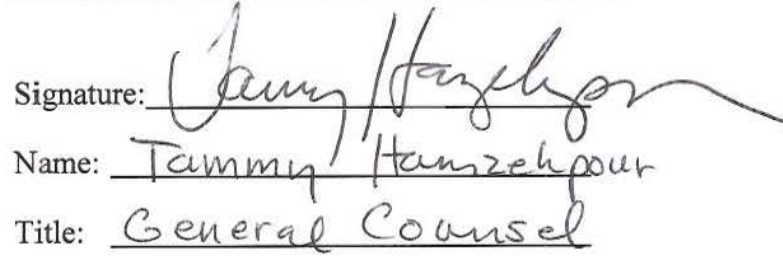 Signature: Tammy Hamzehpour
Name: Tammy Hamzehpour
Title: General Counsel